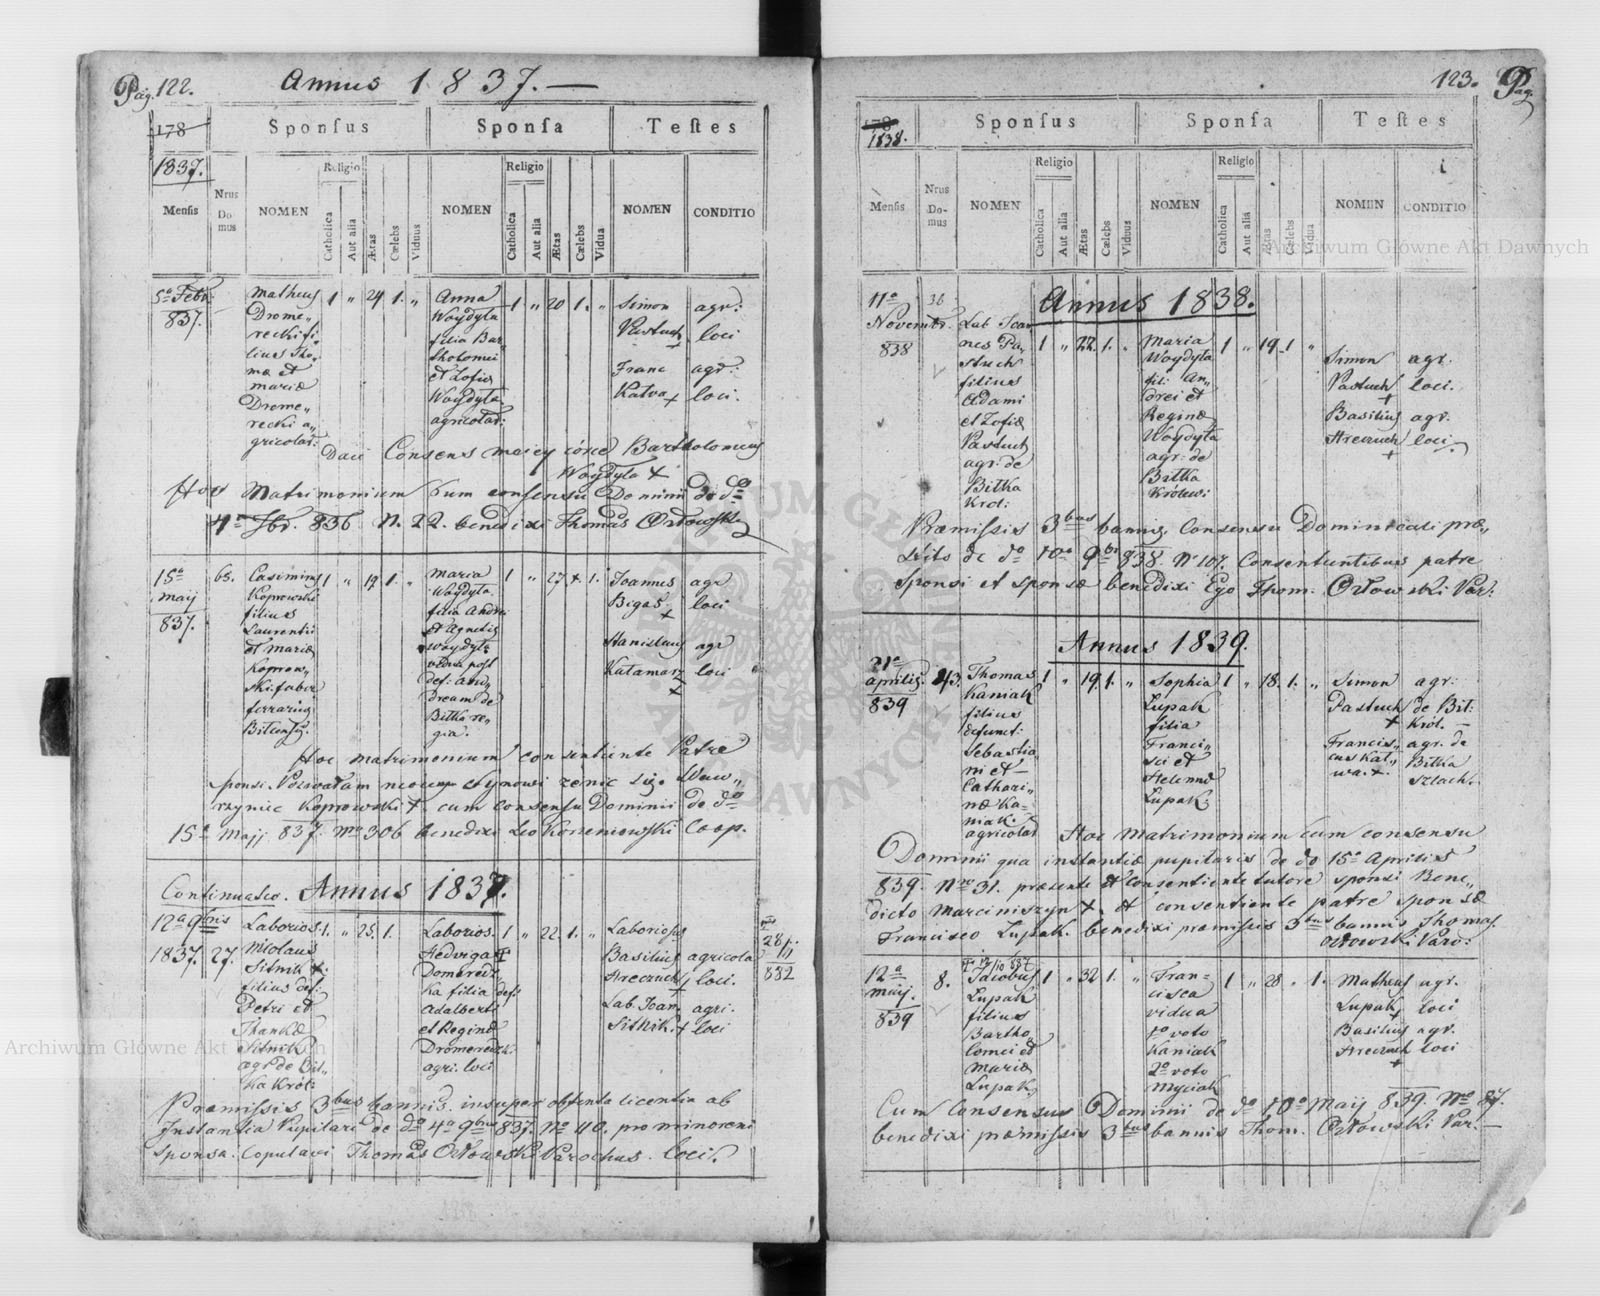 Pag. 122.
Annus 1837. —
178
Sponsus Sponsa Testes
1837.
Religio Religio
Mensis
Nrus Domus
NOMEN
Catholica
Aut alia
Ætas
Cœlebs
Viduus
NOMEN
Catholica
Aut alia
Ætas
Cœlebs
Vidua
NOMEN
CONDITIO
5a Febr.
837.
Matheus
Drome„
recki fi„
lius Tho„
mæ et
Mariæ
Drome„
recki a„
gricolar:
1 „ 24 1. „
Anna
Woydyla
filia Bar„
tholomei
et Zofiæ
Woydyla
agricolar:
1 „ 20 1. „
Simon agr:
Pastuch loci
+
Franc agr:
Katva + loci.
Daie Consens moiey córce Bartholomeus
Woydyla +
Hoc Matrimonium cum consensu Dominii de do
836 N. 22. benedixi Thomas Orłowski
15a
Maij
837.
65.
Casimirus
Koprowski
filius
Laurentii
et Mariæ
Koprow„
ski faber
ferrarius
1 „ 19 1. „
Maria
Woydyla
filia Andreæ
et Agnetis
Woydyla
vidua post
def: And„
Dream de
Bitka re„
gia.
1 „ 27 „ 1.
Joannes agr
Bigas + loci
Stanislaus agr
Katamarz loci
+
Hoc matrimonium consentiente Patre
Sponsi. Pozwalam moiemu Synowi zenic sie. Waw„
rzyniec Koprowski +. cum consensu Dominii de do
15a Maij 837. No 306 benedixi Leo Korzeniowski Coop.
Continuatio. Annus 1837.
12a 9bris
1837.
27.
Laborios.
Nicolaus
Sitnik +
filius def:
Petri et
Thankæ
Sitnik
agr de Bit„
ka Król:
1. „ 25. 1.
Laborios.
Hedvigæ
Domerecz„
ka filia def:
Adalberti
et Reginæ
Dromereczk:
agri. loci
1 „ 22. 1. „
Laboriosus
Basilius agricola
Hreczuch + loci.
Lab. Joan agri.
Sitnik. + loci
28/
882
Præmissis 3bus bannis. insuper obtenta licentia ab
Instantia Pupilari de do 4a 9bris 837. No 40. pro minoreni
Sponsa. Copulavi Thomas Orłowski Parochus loci.
123. Pag.
178
1838.
Sponsus Sponsa Testes
Religio Religio
Mensis
Nrus Domus
NOMEN
Catholica
Aut alia
Ætas
Cœlebs
Viduus
NOMEN
Catholica
Aut alia
Ætas
Cœlebs
Vidua
NOMEN
CONDITIO
Annus 1838.
11a
Novembr.
838
36
Lab Joan
nes Pa„
stuch
filius
Adami
et Zofiæ
Pastuch
agr: de
Bitka
Krol:
1 „ 22. 1. „
Maria
Woydyla
fil: An„
drei et
Reginæ
Woydyla
agr: de
Bitka
Królew:
1 „ 19 1 „
Simon agr.
Pastuch loci.
+
Basilius agr.
Hreczuch loci.
+
Præmissis 3bus bannis, Consensu Dominicali præ„
stito de do 10a 9bris 838. No 107. Consentientibus patre
Sponsi et Sponsæ benedixi Ego Thom. Orłowski Par:
Annus 1839.
21a
Aprilis
839
43.
Thomas
Kaniak
filius
defunct:
Sebastia
ni et —
Cathari„
næ Ka=
niak.
agricolar
1 „ 19. 1. „
Sophia
Lupak
filia
Franci„
sci et
Helenæ
Lupak
1 „ 18. 1. „
Simon agr:
Pastuch de Bit:
+ Król. —
Francis„ agr. de
cus Kat„ Bitka
wa. + Szlach.
Hoc Matrimonium cum consensu
Dominii qua instantiæ pupilaris de do 15a Aprilis
839 Nro 31. præsente et consentiente tutore sponsi Bene„
dicto Marciniszyn +. et consentiente patre sponsæ
Francisco Lupak. benedixi præmissis 3bus bannis Thomas
Orłowski Paro:
12a
Maij.
839
8.
Jacobus
Lupak
filius
Bartho
lomei et
Mariæ
Lupak
1 „ 32 1. „
Fran=
cisca
vidua
1o voto
Kaniak
2o voto
Myciak
1 „ 28 „ 1.
Matheus agr.
Lupak + loci
Basilius agr.
Hreczuch loci
+
Cum Consensu Dominii de do 10a Maij 839. No 87.
benedixi præmissis 3bus bannis Thom. Orłowski Par. —
Archiwum Główne Akt Dawnych
Archiwum Główne Akt Dawnych
ARCHIWUM GŁÓWNE AKT DAWNYCH